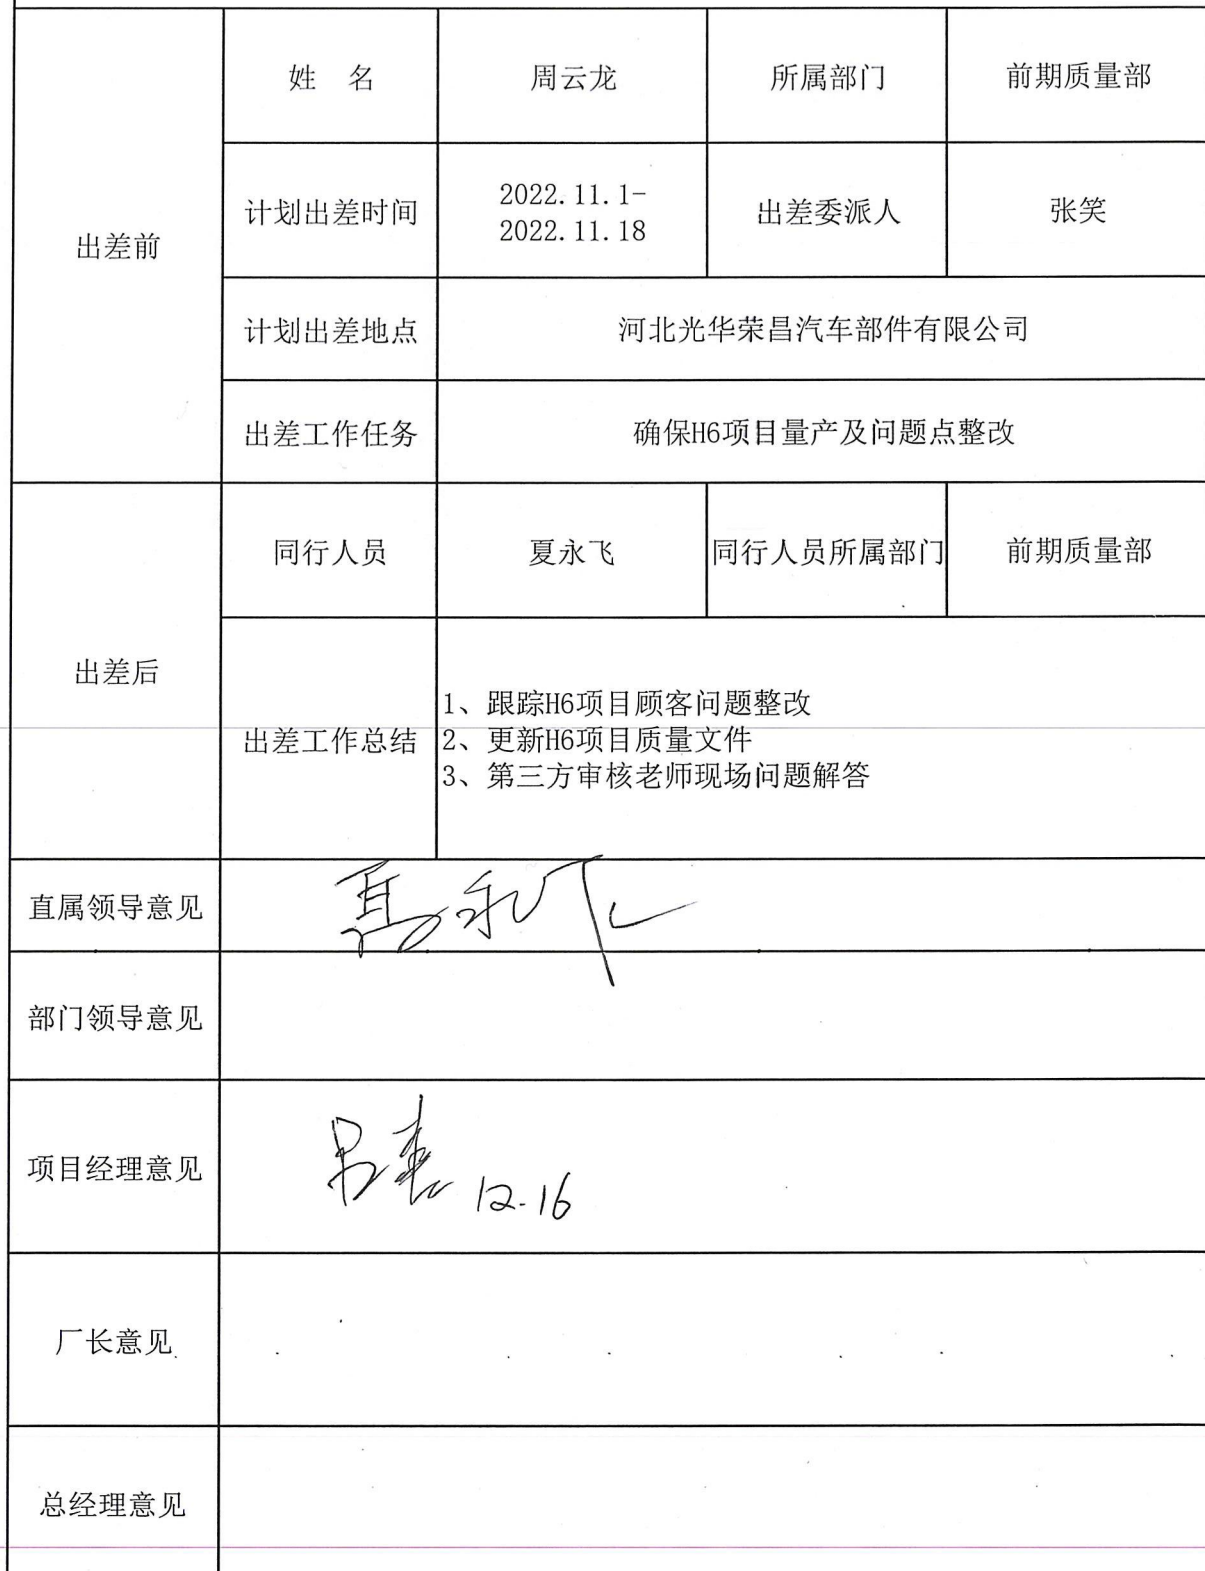 姓 名 周云龙 所属部门 前期质量部
计划出差时间 2022.11.1-
2022.11.18 出差委派人 张笑
出差前
计划出差地点 河北光华荣昌汽车部件有限公司
出差工作任务 确保H6项目量产及问题点整改
同行人员 夏永飞 同行人员所属部门 前期质量部
出差后
出差工作总结
1、跟踪H6项目顾客问题整改
2、更新H6项目质量文件
3、第三方审核老师现场问题解答
直属领导意见 夏永飞
部门领导意见
项目经理意见 12.16
厂长意见
总经理意见